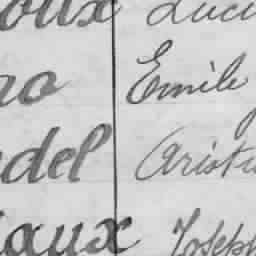 oux Luci
no Emile
del Aristi
iaux Joseph